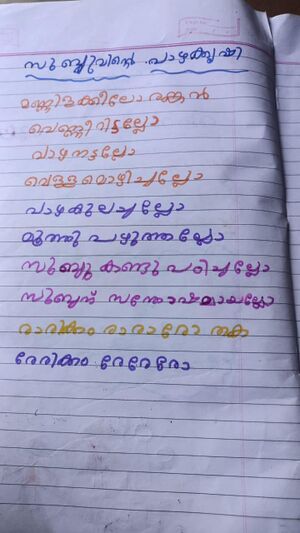 സുബ്ബുവിന്റെ വാഴകൃഷി
മണ്ണിളക്കീലോ രങ്കൻ
വെണ്ണീറിട്ടല്ലോ
വാഴനട്ടല്ലോ
വെള്ളമൊഴിച്ചല്ലോ
വാഴകുലച്ചല്ലോ
മൂത്തു പഴുത്തല്ലോ
സുബ്ബു കണ്ടു പഠിച്ചല്ലോ
സുബ്ബുന് സന്തോഷമായല്ലോ
രാരിക്കം രാരാരോ തക
രേരിക്കം രേരേരോ